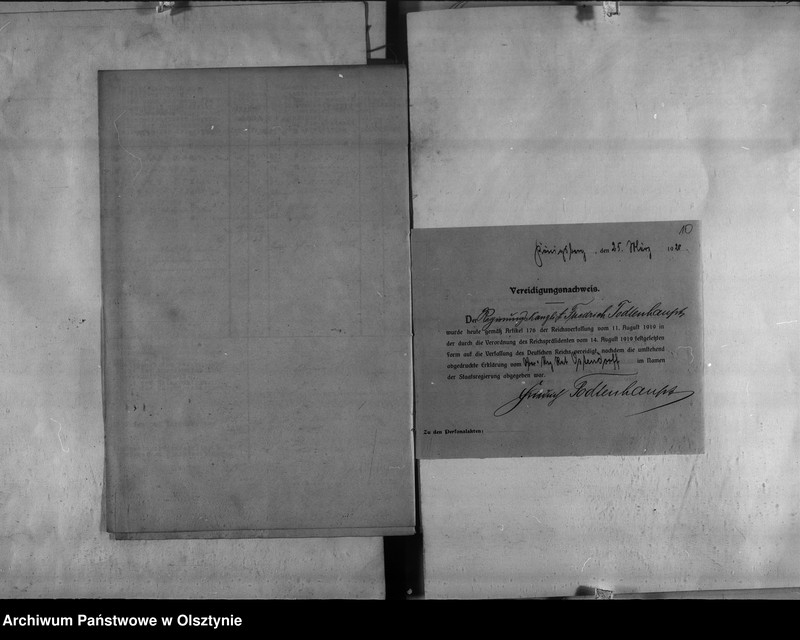 10
Königsberg, den 25. März 1920.
Vereidigungsnachweis.
Der Regierungskanzlist Friedrich Todtenhaupt
wurde heute gemäß Artikel 176 der Reichsverfassung vom 11. August 1919 in
der durch die Verordnung des Reichspräsidenten vom 14. August 1919 festgesetzten
Form auf die Verfassung des Deutschen Reichs vereidigt, nachdem die umstehend
abgedruckte Erklärung vom im Namen
der Staatsregierung abgegeben war.
Friedrich Todtenhaupt
Zu den Personalakten:
Archiwum Państwowe w Olsztynie